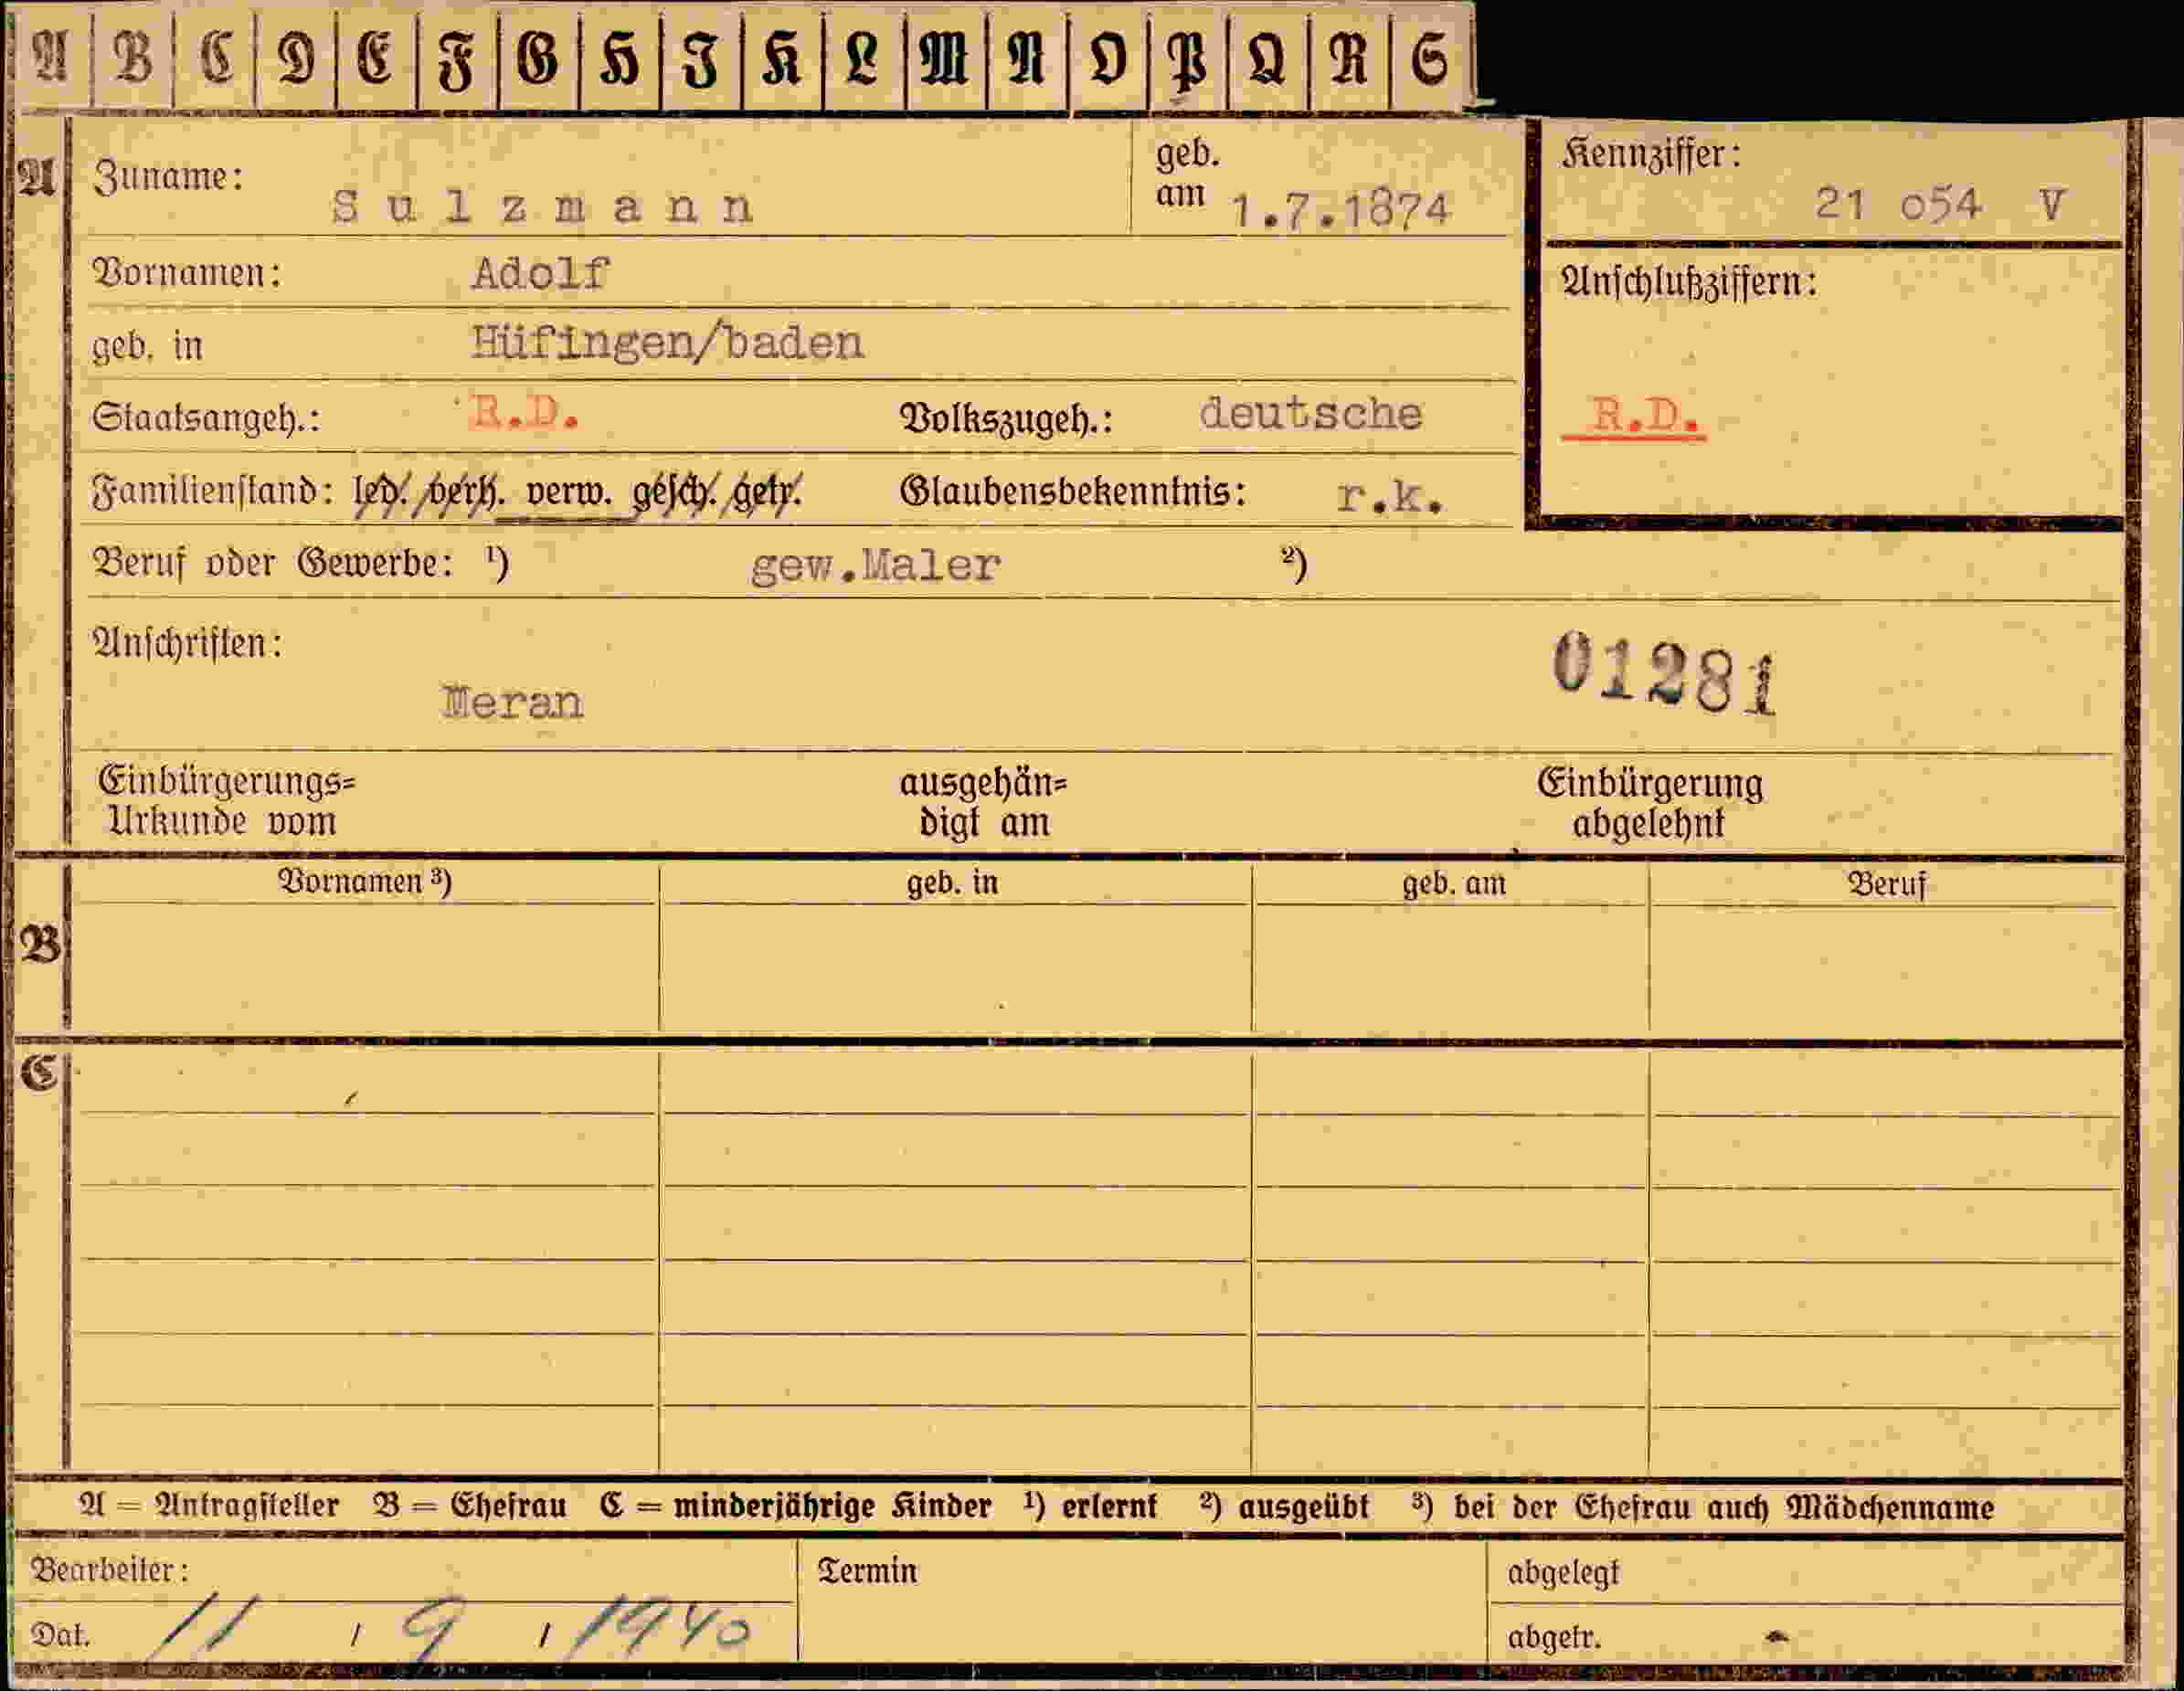 A B C D E F G H I K L M N O P Q R S
A Zuname: Sulzmann geb. am 1.7.1874 Kennziffer: 21 o54 V
Vornamen: Adolf Anschlußziffern:
geb. in Hüfingen/baden
Staatsangeh.: R.D. Volkszugeh.: deutsche R.D.
Familienstand: led. verh. verw. gesch. getr. Glaubensbekenntnis: r.k.
Beruf oder Gewerbe: ¹) gew.Maler ²)
Anschriften: 01281
Meran
Einbürgerungs= ausgehän= Einbürgerung
Urkunde vom digt am abgelehnt
Vornamen ³) geb. in geb. am Beruf
B
C
A = Antragsteller B = Ehefrau C = minderjährige Kinder ¹) erlernt ²) ausgeübt ³) bei der Ehefrau auch Mädchenname
Bearbeiter: Termin abgelegt
Dat. 11 / 9 / 1940 abgetr.